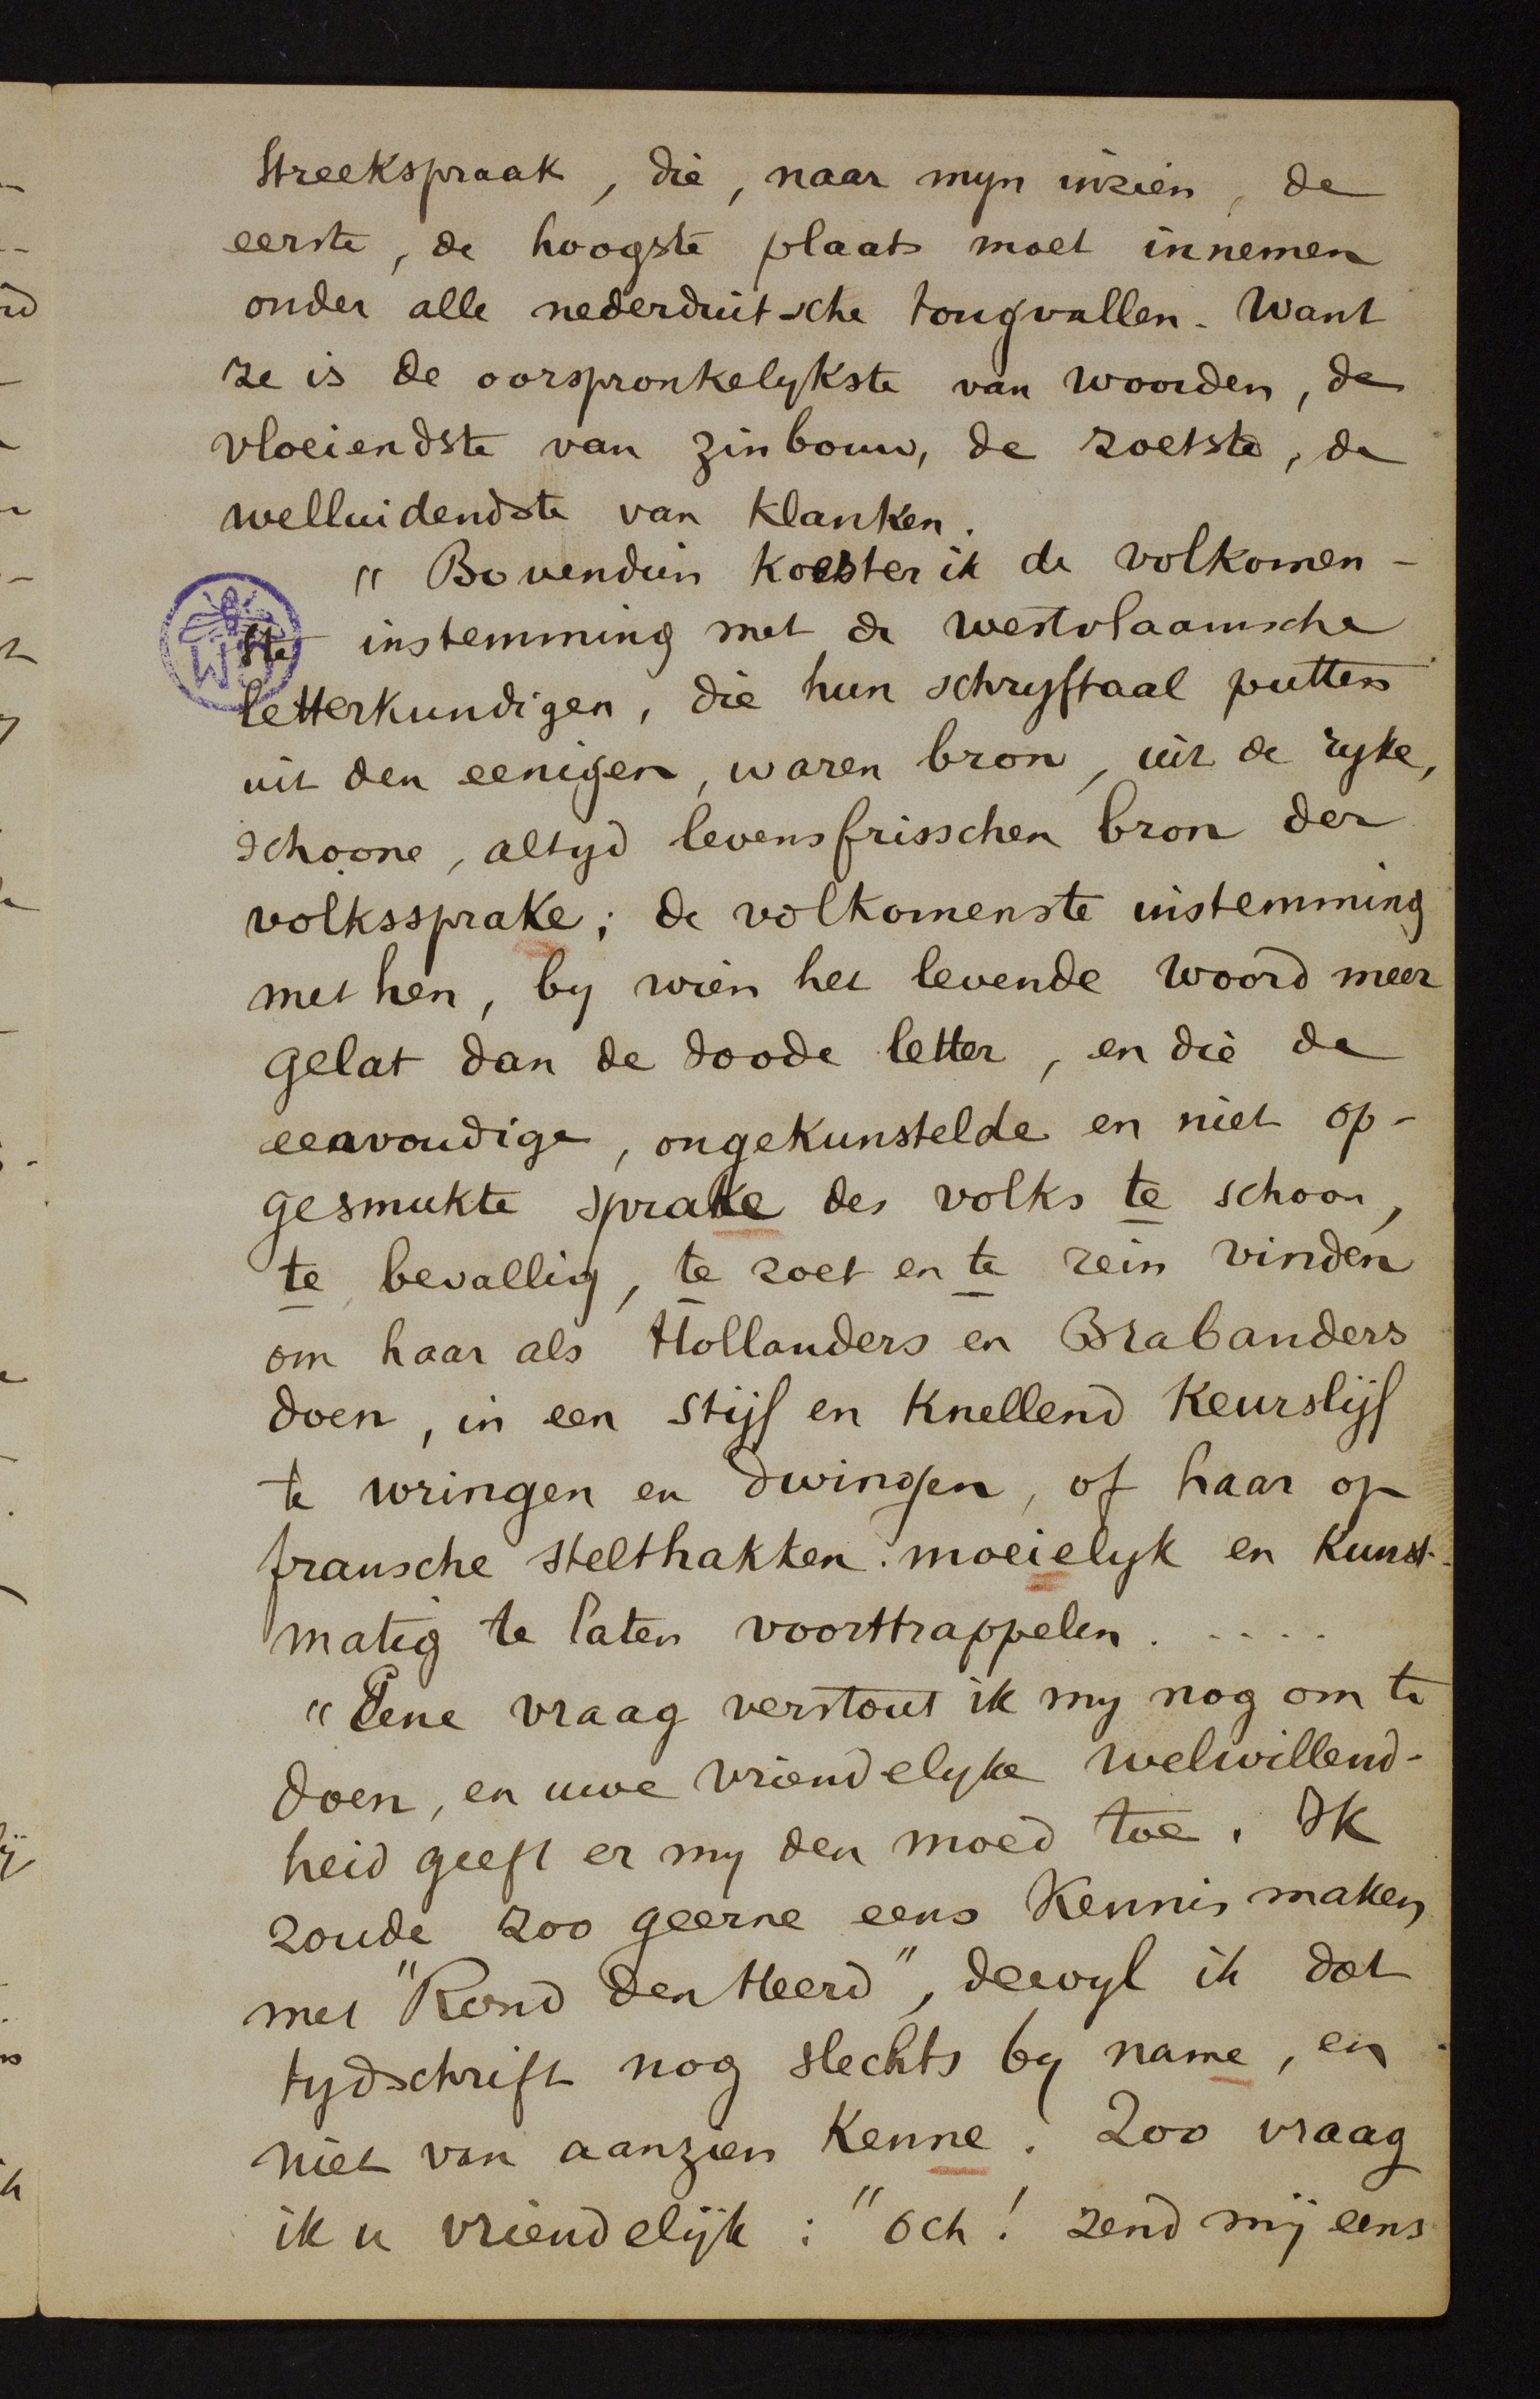 streekspraak, die, naar myn inzien, de
eerste, de hoogste plaats moet innemen
onder alle nederduitsche tongvallen. Want
ze is de oorspronkelykste van woorden, de
vloeiendste van zinbouw, de zoetste, de
welluidendste van klanken.
" Bovendien koester ik de volkomen-
ste instemming met de westvlaamsche
letterkundigen, die hun schryftaal putten
uit den eenigen, waren bron, uit de ryke,
schoone, altyd levensfrisschen bron der
volkssprake; de volkomenste instemming
met hen, by wien het levende woord meer
gelat dan de doode letter, en die de
eenvoudige, ongekunstelde en niet op-
gesmukte sprake des volks te schoon,
te bevallig, te zoet en te rein vinden
om haar als Hollanders en Brabanders
doen, in een stijf en knellend keurslijf
te wringen en dwingen, of haar op
fransche stelthakken moeielyk en kunst-
matig te laten voorttrappelen. ....
"Eene vraag verstout ik my nog om te
doen, en uwe vriendelyke welwillend-
heid geeft er my den moed toe. Ik
zoude zoo geerne eens kennis maken
met "Rond den Heerd", dewyl ik dat
tydschrift nog slechts by name, en
niet van aanzien kenne. Zoo vraag
ik u vriendelijk: "och! zend mij eens